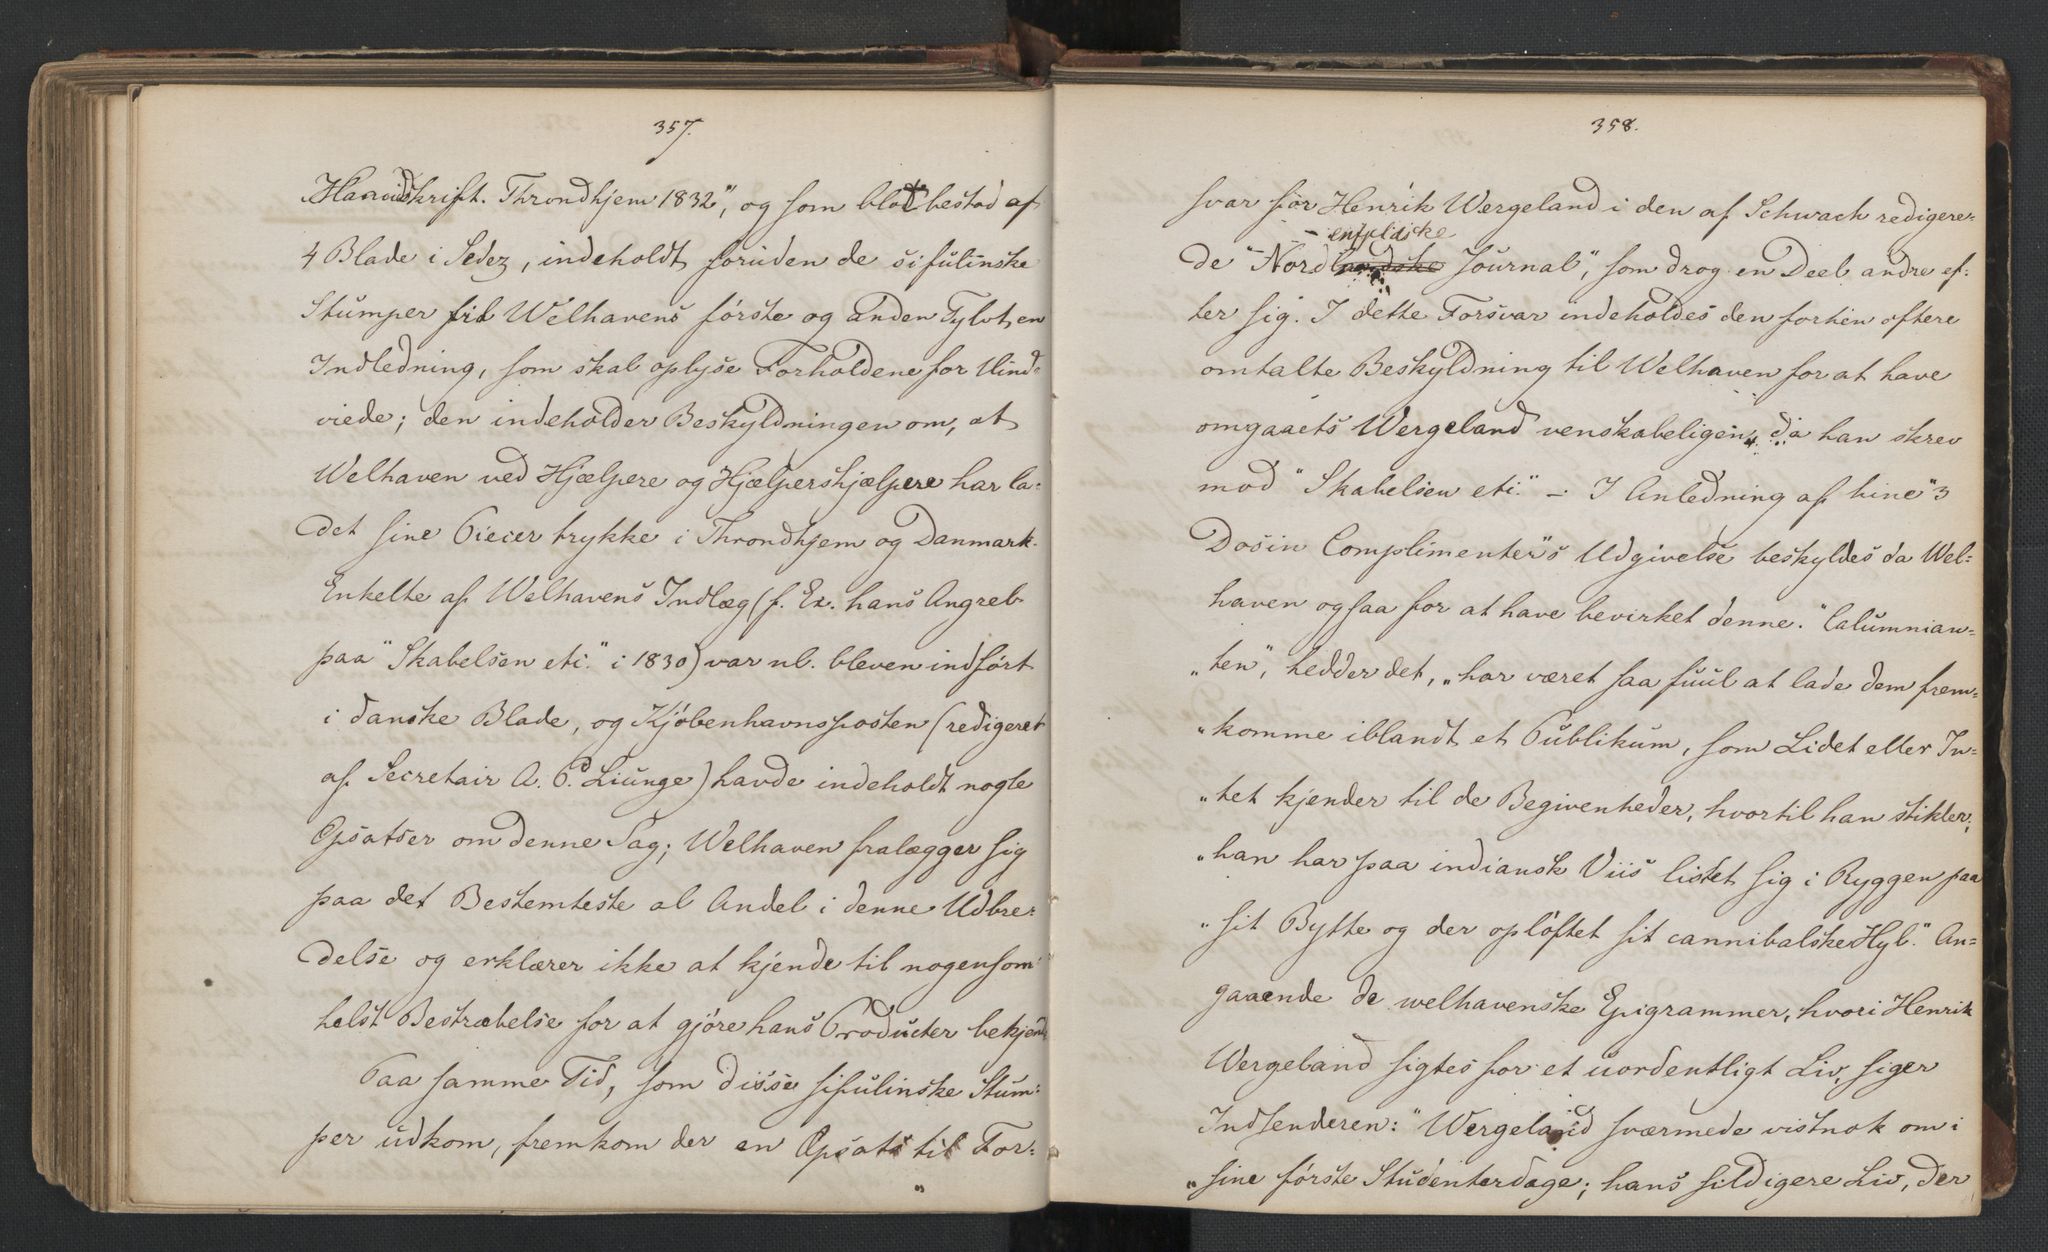 357.
Haandskrift. Throndhjem 1832", og som blot bestod af
4 Blade i Sedez, indeholdt foruden de sifulinske
Stumper til Welhavens første og anden Tylvt en
Indledning, som skal oplyse Forholdene for Uind-
viede; den indeholder Beskyldningen om, at
Welhaven ved Hjælpere og Hjælpershjælpere har la-
det sine Piecer trykke i Throndhjem og Danmark.
Enkelte af Welhavens Indlæg (f. Ex. hans Angreb
paa "Skabelsen etc." i 1830) var nl. bleven indført
i danske Blade, og Kjöbenhavnsposten (redigeret
af Secretair A. P. Liunge) havde indeholdt nogle
Opsatser om denne Sag; Welhaven fralægger sig
paa det Bestemteste al Andel i denne Udbre-
delse og erklærer ikke at kjende til nogensom-
helst Bestræbelse for at gjöre hans Producter bekjendt
Paa samme Tid, som disse sifulinske Stum-
per udkom, fremkom der en Opsats til For-
358.
svar for Henrik Wergeland i den af Schwach redigere-
enfjeldske
de "Nordlandske Journal", som drog en Deel andre ef-
ter sig. I dette Forsvar indeholdes den forhen oftere
omtalte Beskyldning til Welhaven for at have
omgaaets Wergeland venskabeligen, da han skrev
mod "Skabelsen etc." — I Anledning af hine "3
Dosin Complimenter"s Udgivelse beskyldes da Wel-
haven ogsaa for at have bevirket denne. "Calumnian-
"ten", hedder det, "har været saa fuul at lade dem frem-
"komme iblandt et Publikum, som Lidet eller In-
"tet kjender til de Begivenheder, hvortil han stikler;
"han har paa indiansk Viis listet sig i Ryggen paa
"sit Bytte og der oplöftet sit cannibalske Hyl." An-
gaaende de welhavenske Epigrammer, hvori Henrik
Wergeland sigtes for et uordentligt Liv, siger
Indsenderen: "Wergeland sværmede vistnok om i
"sine første Studenterdage; hans sildigere Liv, der